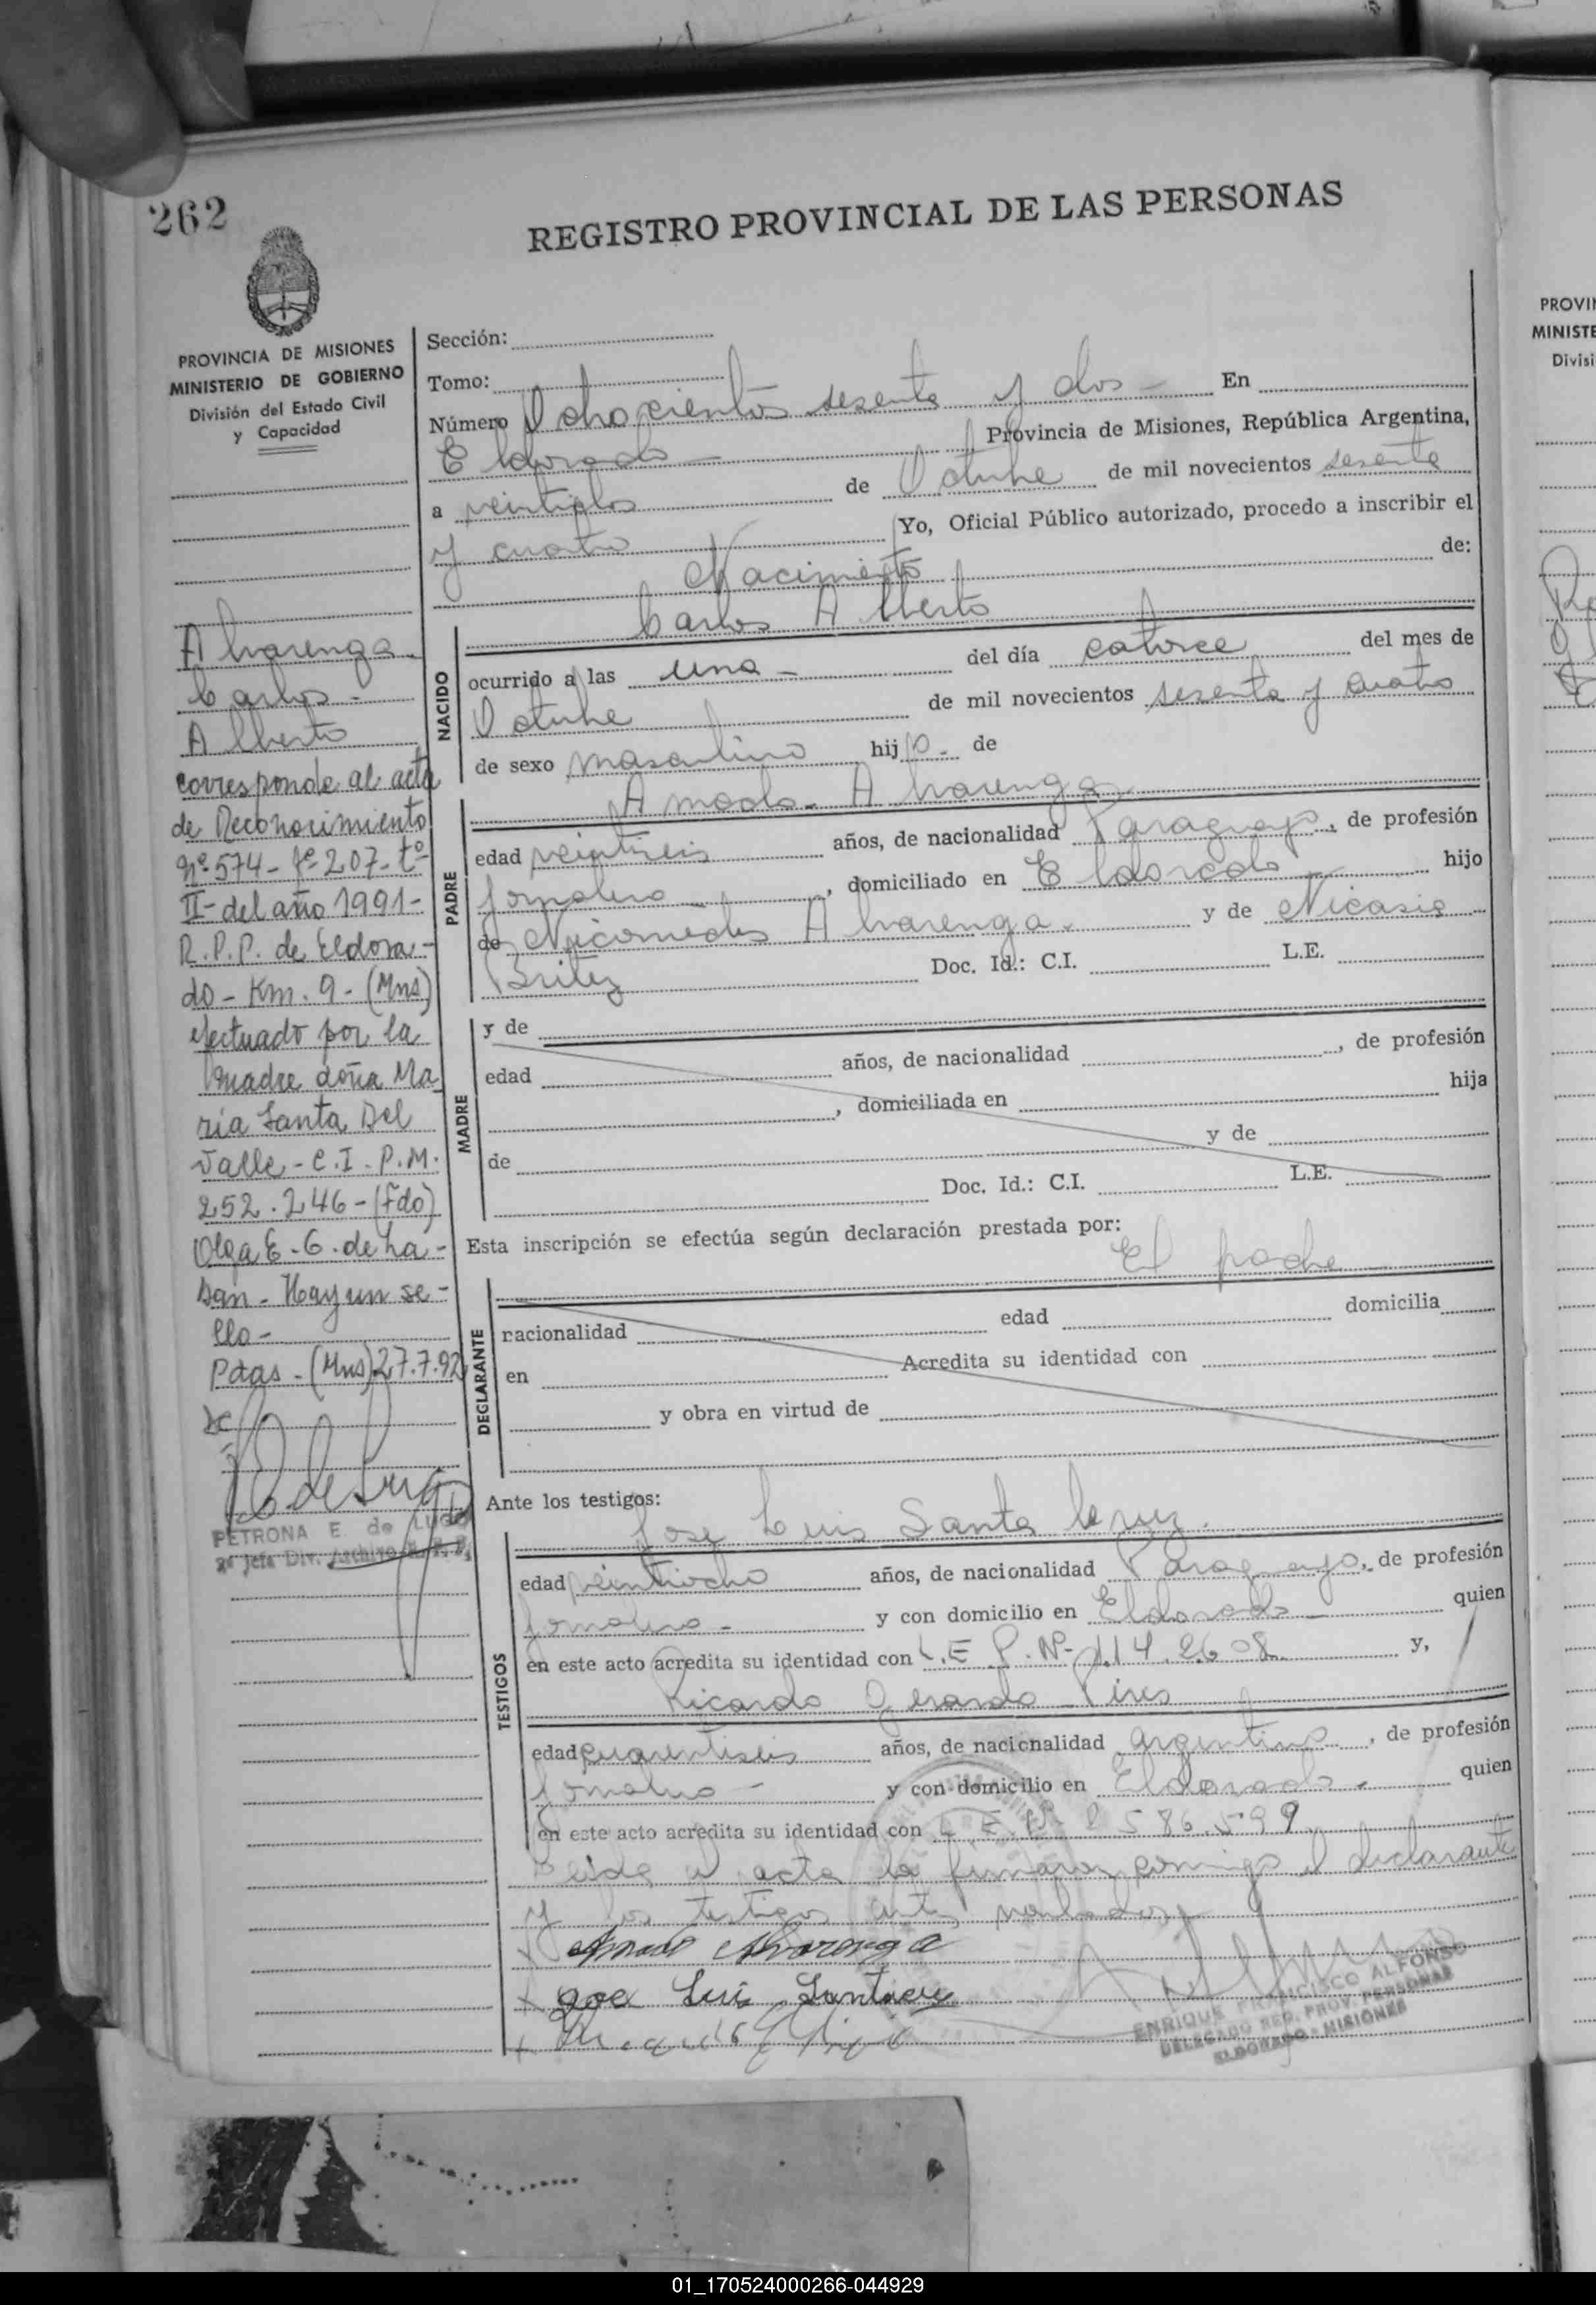 262
REGISTRO PROVINCIAL DE LAS PERSONAS
PROVINCIA DE MISIONES
MINISTERIO DE GOBIERNO
División del Estado Civil
y Capacidad
Alvarenga
Carlos -
Alberto
corresponde al acta
de Reconocimiento
Nº 574 - Fº 207 - tº
II - del año 1991 -
R.P.P. de Eldora-
do - Km. 9 - (Mns)
efectuado por la
madre doña Ma-
ría Santa Del
Valle - C.I. P.M.
252.246 - (Fdo)
Olga E. G. de La-
dan - Hay un se-
llo -
Pdas - (Mns) 27.7.92
PETRONA E. de LUGO
2ª Jefa Div. Archivo R. P. P.
Sección:
Tomo:
Número Ochocientos sesenta y dos - En
Eldorado - Provincia de Misiones, República Argentina,
a veintidos de Octubre de mil novecientos sesenta
y cuatro Yo, Oficial Público autorizado, procedo a inscribir el
Nacimiento de:
Carlos Alberto
NACIDO
ocurrido a las una - del día catorce del mes de
Octubre de mil novecientos sesenta y cuatro
de sexo masculino hijo - de
Amado - Alvarenga
PADRE
edad veintiseis años, de nacionalidad Paraguayo, de profesión
jornalero - , domiciliado en Eldorado - hijo
de Nicomedes Alvarenga - y de Nicasia
Britez Doc. Id.: C.I. L.E.
MADRE
y de
edad años, de nacionalidad , de profesión
, domiciliada en hija
de y de
Doc. Id.: C.I. L.E.
Esta inscripción se efectúa según declaración prestada por:
El padre -
DECLARANTE
nacionalidad edad domicilia
en Acredita su identidad con
y obra en virtud de
Ante los testigos:
Jose Luis Santa Cruz.
TESTIGOS
edad veintiocho años, de nacionalidad Paraguayo, de profesión
jornalero - y con domicilio en Eldorado - quien
en este acto acredita su identidad con Nº 114.2608 y,
Ricardo Gerardo Pires
edad cuarentiseis años, de nacionalidad argentino, de profesión
jornalero - y con domicilio en Eldorado - quien
en este acto acredita su identidad con L.E. 586.599
Leida el acta la firmaron conmigo el declarante
y los testigos antes nombrados
Amado Alvarenga
Jose Luis Santacruz
ENRIQUE FRANCISCO ALFONSO
DELEGADO REG. PROV. PERSONAS
ELDORADO - MISIONES
PROVIN
MINISTE
Divisi
01_170524000266-044929